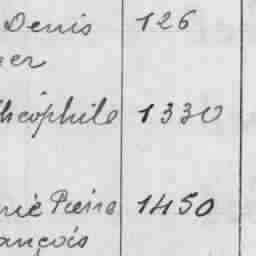 Denis 126
er
Théophile 1330
rié Pierre 1450
ançois